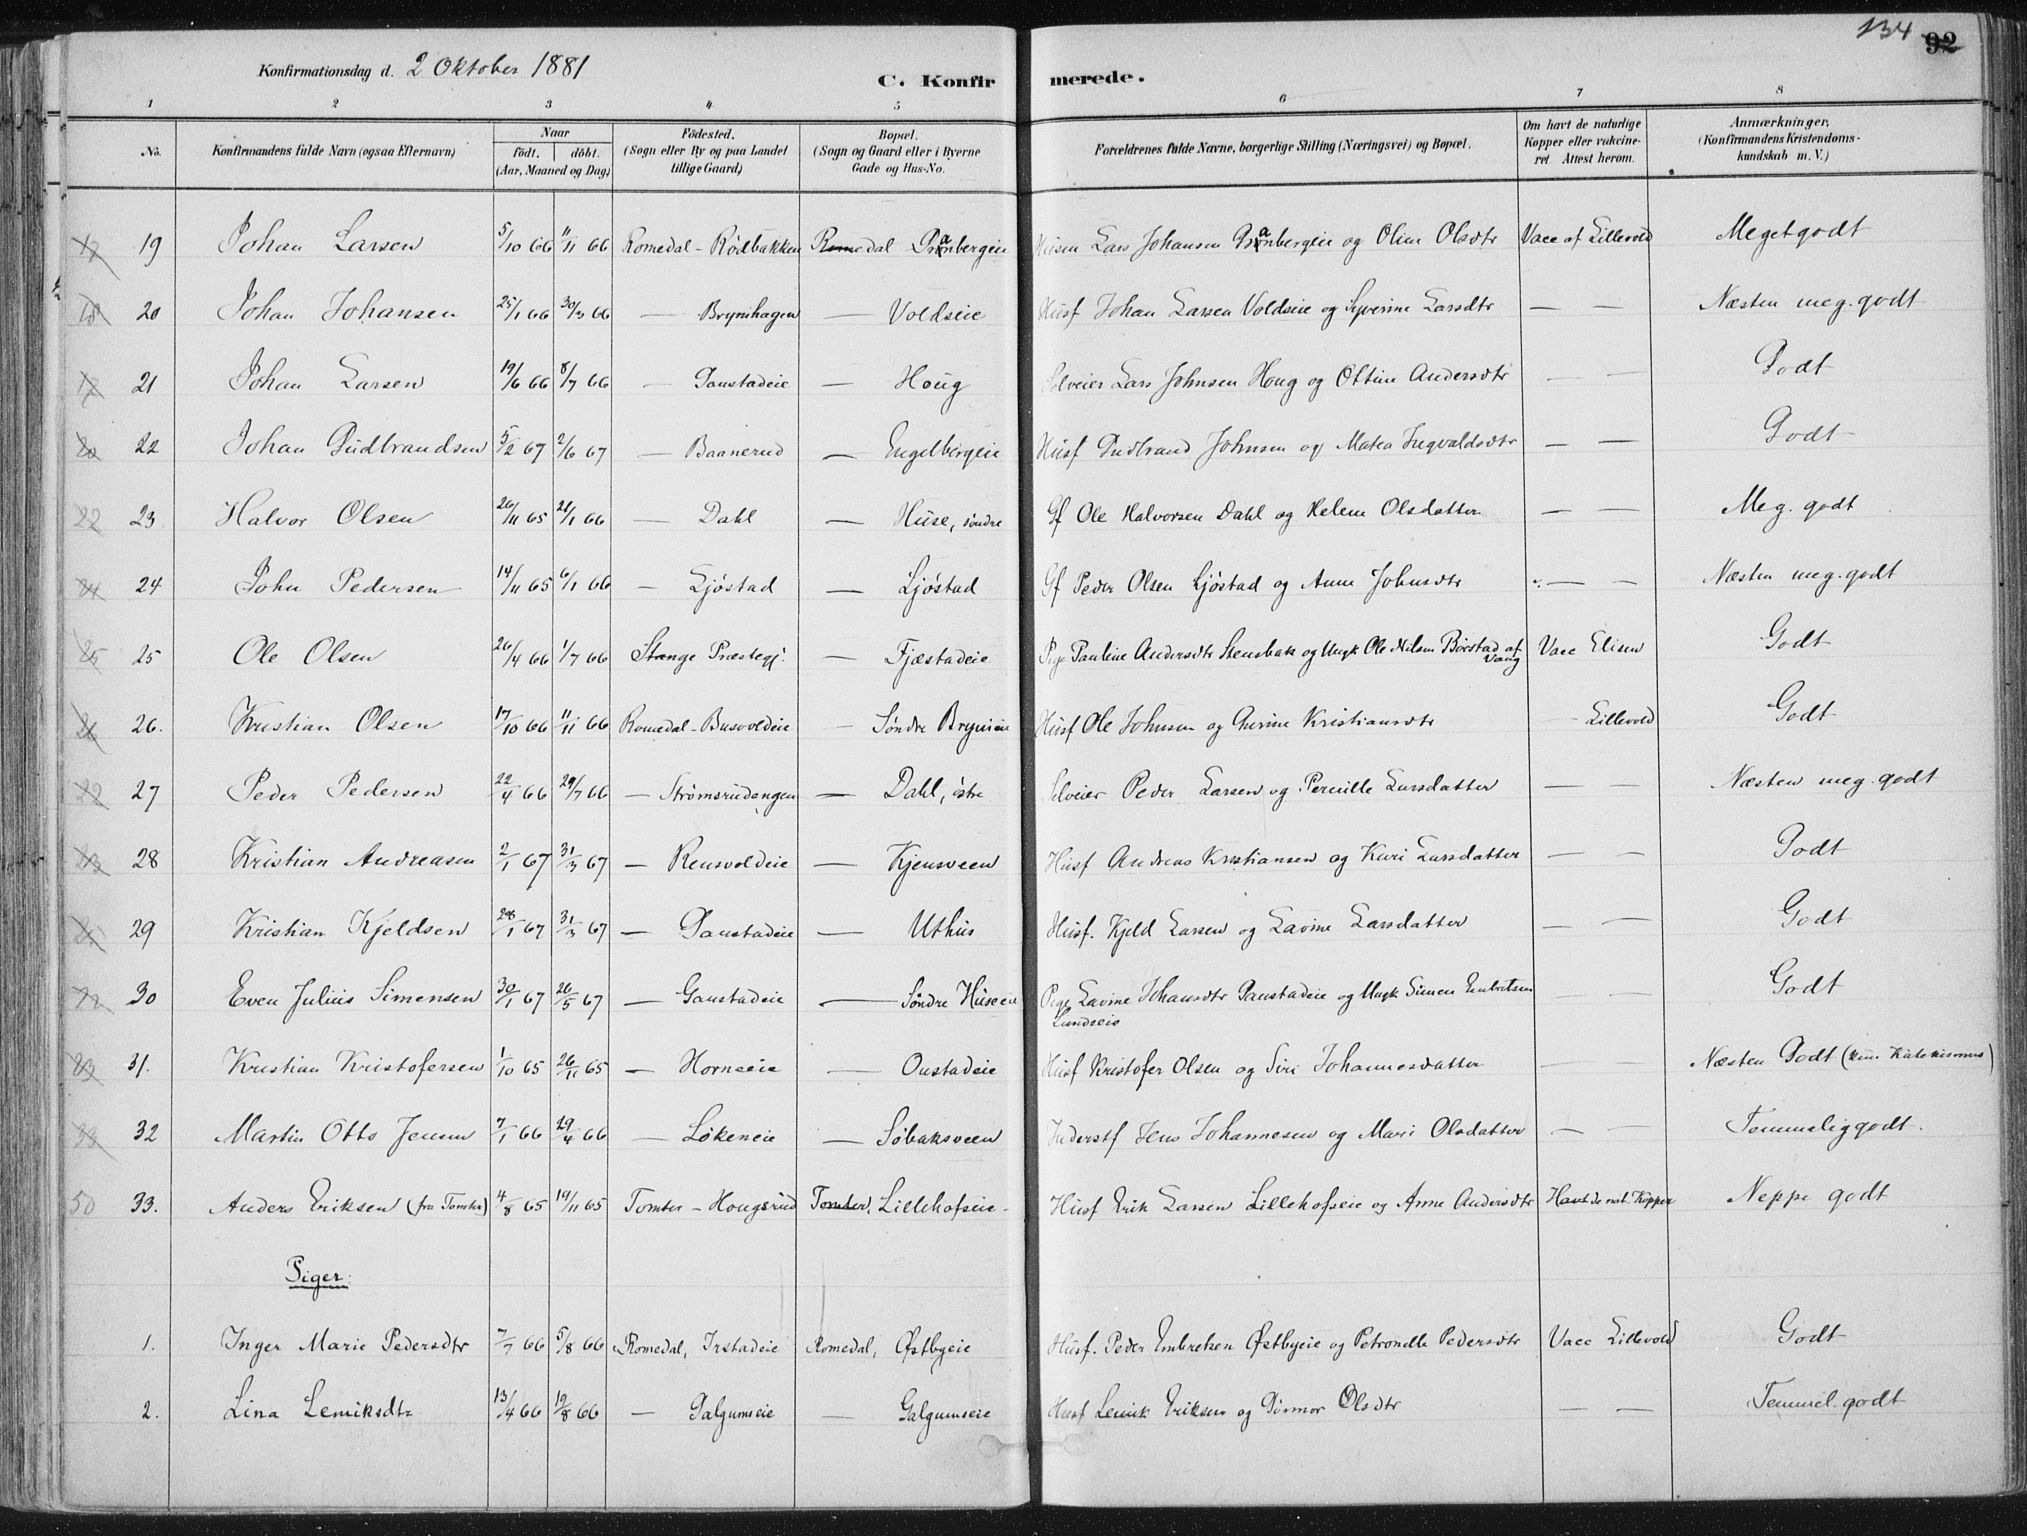 134 92
Konfirmationsdag d. 2 Oktober 1881
C. Konfirmerede.
1 2 3 4 5 6 7 8
No. Konfirmandens fulde Navn (ogsaa Efternavn) Naar födt. döbt. (Aar, Maaned og Dag) Födested. (Sogn eller By og paa Landet tillige Gaard) Bopæl. (Sogn og Gaard eller i Byerne Gade og Hus-No. Forældrenes fulde Navne, borgerlige Stilling (Næringsvei) og Bopæl. Om havt de naturlige Kopper eller vakcineret Attest herom. Anmærkninger, (Konfirmandens Kristendomskundskab m. V.)
19 Johan Larsen 5/10 66 11/11 66 Romedal - Rödbakken Romedal Lars Johansen og Oline Olsdtr Vacc af Lillevold Meget godt
20 Johan Johansen 25/1 66 30/3 66 — Brynihagen — Voldseie Husf Johan Larsen Voldseie og Syverine Larsdtr — — Næsten meg. godt
21 Johan Larsen 19/6 66 8/7 66 — Gaustadeie — Houg Selveier Lars Johnsen Houg og Ottine Andersdtr — — Godt
22 Johan Gudbrandsen 5/2 67 2/6 67 — Baanerud — Engelbergeie Husf Gudbrand Johnsen og Matea Ingvaldsdtr — — Godt
22 23. Halvor Olsen 20/11 65 21/1 66 — Dahl — Huse, söndre Gf Ole Halvorsen Dahl og Helene Olsdatter — — Meg. godt
24 24 John Pedersen 14/11 65 6/1 66 — Ljöstad — Ljöstad Gf Peder Olsen Ljöstad og Anne Johnsdtr — — Næsten meg. godt
25 25 Ole Olsen 26/4 66 1/7 66 Stange Præstegj. — Fjæstadeie Pige Pauline Andersdtr Stensbak og Ungk Ole Nilsen Börstad af Vang Vacc Elisen Godt
26. Kristian Olsen 17/10 66 11/11 66 Romedal - Busvoldeie — Söndre Brynieie Husf Ole Johnsen og Gurine Kristiansdtr — Lillevold Godt
27 Peder Pedersen 22/4 66 29/7 66 — Strömsrudengen — Dahl, östre Selveier Peder Larsen og Pernille Larsdatter — — Næsten meg. godt
28 Kristian Andreasen 2/1 67 31/3 67 — Rensvoldeie — Kjensveen Husf Andreas Kristiansen og Kari Larsdatter — — Godt
29 Kristian Kjeldsen 28/1 67 31/3 67 — Gaustadeie — Uthus Husf. Kjeld Larsen og Lavine Larsdatter — — Godt
30 Even Julius Simensen 30/1 67 26/5 67 — Gaustadeie — Söndre Huseeie Pige Lavine Johansdtr Gaustadeie og Ungk Simen Embretsen Lundseie — — Godt
31. Kristian Kristofersen 1/10 65 26/11 65 — Horneeie — Oustadeie Husf Kristofer Olsen og Siri Johannesdatter — — Næsten Godt (kun Katekismus)
32 Martin Otto Jensen 7/1 66 29/4 66 — Lökeneie — Söbaksveen Inderstf Jens Johannesen og Mari Olsdatter — — Temmelig godt.
50 33. Anders Eriksen (fra Tomter) 4/8 65 19/11 65 Tomter - Hougsrud Tomter, Lillehofseie - Husf Erik Larsen Lillehofseie og Anne Andersdtr Havt de nat. Kopper Neppe godt
Piger.
1. Inger Marie Pedersdtr 7/7 66 5/8 66 Romedal, Irstadeie Romedal, Østbyeie Husf. Peder Embretsen Østbyeie og Petronelle Pedersdtr Vacc Lillevold Godt
2. Lina Lemiksdtr 13/4 66 19/8 66 — Galgumseie — Galgumseie Husf Lemik Eriksen og Gurmor Olsdtr — — Temmel. godt